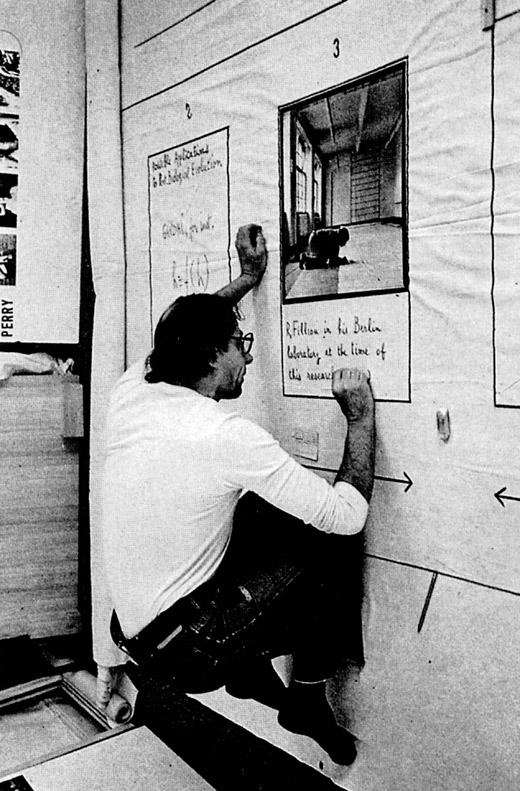 PERRY
2
Possible Applications
to Biological Evolution
for inst.
3
R. Filliou in his Berlin
laboratory at the time of
this research